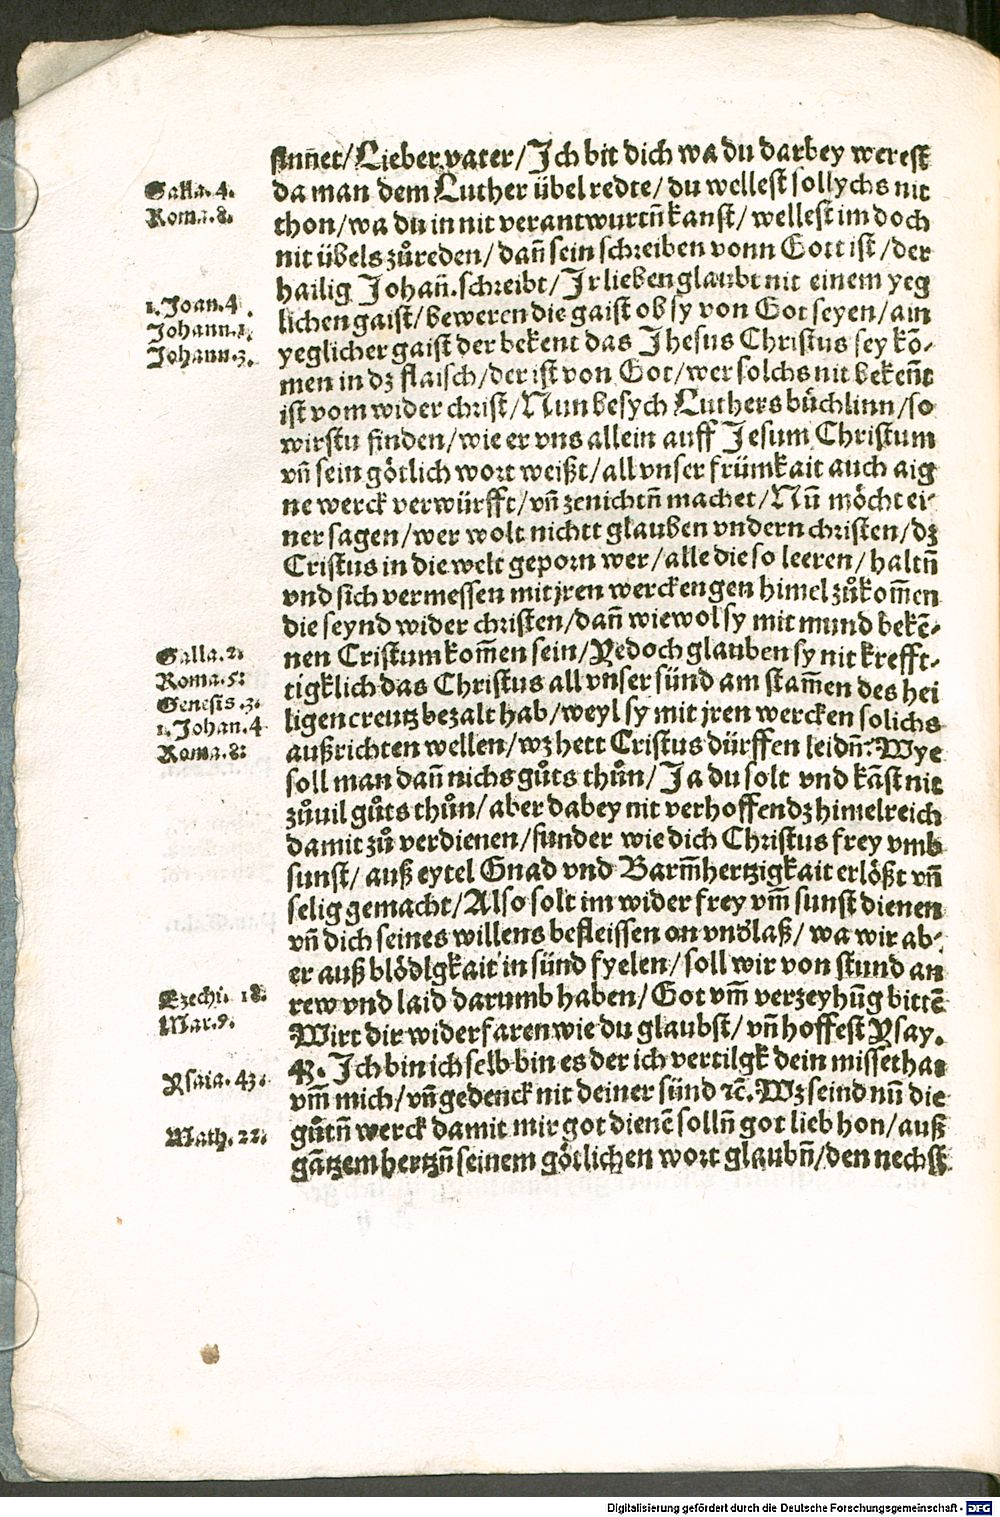 sinnet/Lieber vater/Ich bit dich wa du darbey werest
Galla.4.
da man dem Luther übel redte/du wellest sollychs nit
Roma.8.
thon/wa du in nit verantwurtn̄ kanst/wellest im doch
nit übels zůreden/dan̄ sein schreiben vonn Gott ist/der
hailig Johan̄.schreibt/Ir lieben glaubt nit einem yeg
1.Joan.4.
lichen gaist/beweren die gaist ob sy von Got seyen/ain
Johann.1.
yeglicher gaist der bekent das Jhesus Christus sey kō-
Johann.3.
men in dz flaisch/der ist von Got/wer solchs nit beken̄t
ist vom wider christ/Nun besych Luthers büchlinn/so
wirstu finden/wie er vns allein auff Jesum Christum
vn̄ sein götlich wort weißt/all vnser frümkait auch aig
ne werck verwürfft/vn̄ zenichtn̄ machet/Nū möcht ei-
ner sagen/wer wolt nichtt glauben vndern christen/dz
Cristus in die welt geporn wer/alle die so leeren/haltn̄
vnd sich vermessen mit jren wercken gen himel zůkom̄en
die seynd wider christen/dan̄ wiewol sy mit mund bekē-
Galla.2.
nen Cristum kom̄en sein/Yedoch glauben sy nit krefft-
Roma.5.
tigklich das Christus all vnser sünd am stam̄en des hei
Genesis.3.
ligen creutz bezalt hab/weyl sy mit jren wercken solichs
1.Johan.4
außrichten wellen/wz hett Cristus dürffen leidn̄. Wye
Roma.8.
soll man dan̄ nichs gůts thůn/Ja du solt vnd kāst nit
zůuil gůts thůn/aber dabey nit verhoffen dz himelreich
damit zů verdienen/sunder wie dich Christus frey vmb
sunst/auß eytel Gnad vnd Barm̄hertzigkait erlößt vn̄
selig gemacht/Also solt im wider frey vm̄ sunst dienen
vn̄ dich seines willens befleissen on vnd̕laß/wa wir ab-
er auß blödigkait in sünd fyelen/soll wir von stund an
Ezechi.18.
rew vnd laid darumb haben/Got vm̄ verzeyhūg bittē
Mar.9.
Wirt dir widerfaren wie du glaubst/vn̄ hoffest Ysay.
43. Ich bin ich selb bin es der ich vertilgk dein missethat
Ysaia.43.
vm̄ mich/vn̄ gedenck nit deiner sünd ꝛc̄. Wz seind nū die
Math.22.
gůtn̄ werck damit mir got dienē solln̄ got lieb hon/auß
gātzem hertzn̄ seinem götlichen wort glaubn̄/den nechst
Digitalisierung gefördert durch die Deutsche Forschungsgemeinschaft - DFG